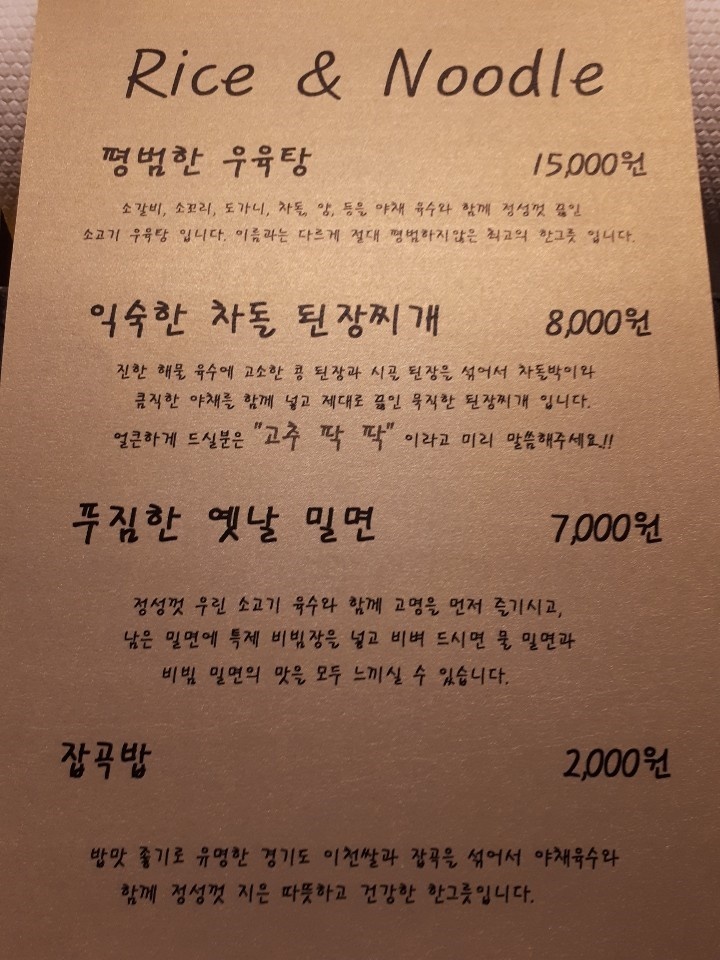 Rice & Noodle
평범한 우육탕 15,000원
소갈비, 소꼬리, 도가니, 차돌, 양, 등을 야채 육수와 함께 정성껏 끓인
소고기 우육탕 입니다. 이름과는 다르게 절대 평범하지않은 최고의 한그릇 입니다.
익숙한 차돌 된장찌개 8,000원
진한 해물 육수에 고소한 콩 된장과 시골 된장을 섞어서 차돌박이와
큼직한 야채를 함께 넣고 제대로 끓인 묵직한 된장찌개 입니다.
얼큰하게 드실분은 "고추 팍 팍" 이라고 미리 말씀해주세요!!
푸짐한 옛날 밀면 7,000원
정성껏 우린 소고기 육수와 함께 고명을 먼저 즐기시고,
남은 밀면에 특제 비빔장을 넣고 비벼 드시면 물 밀면과
비빔 밀면의 맛을 모두 느끼실 수 있습니다.
잡곡밥 2,000원
밥맛 좋기로 유명한 경기도 이천쌀과 잡곡을 섞어서 야채육수와
함께 정성껏 지은 따뜻하고 건강한 한그릇입니다.